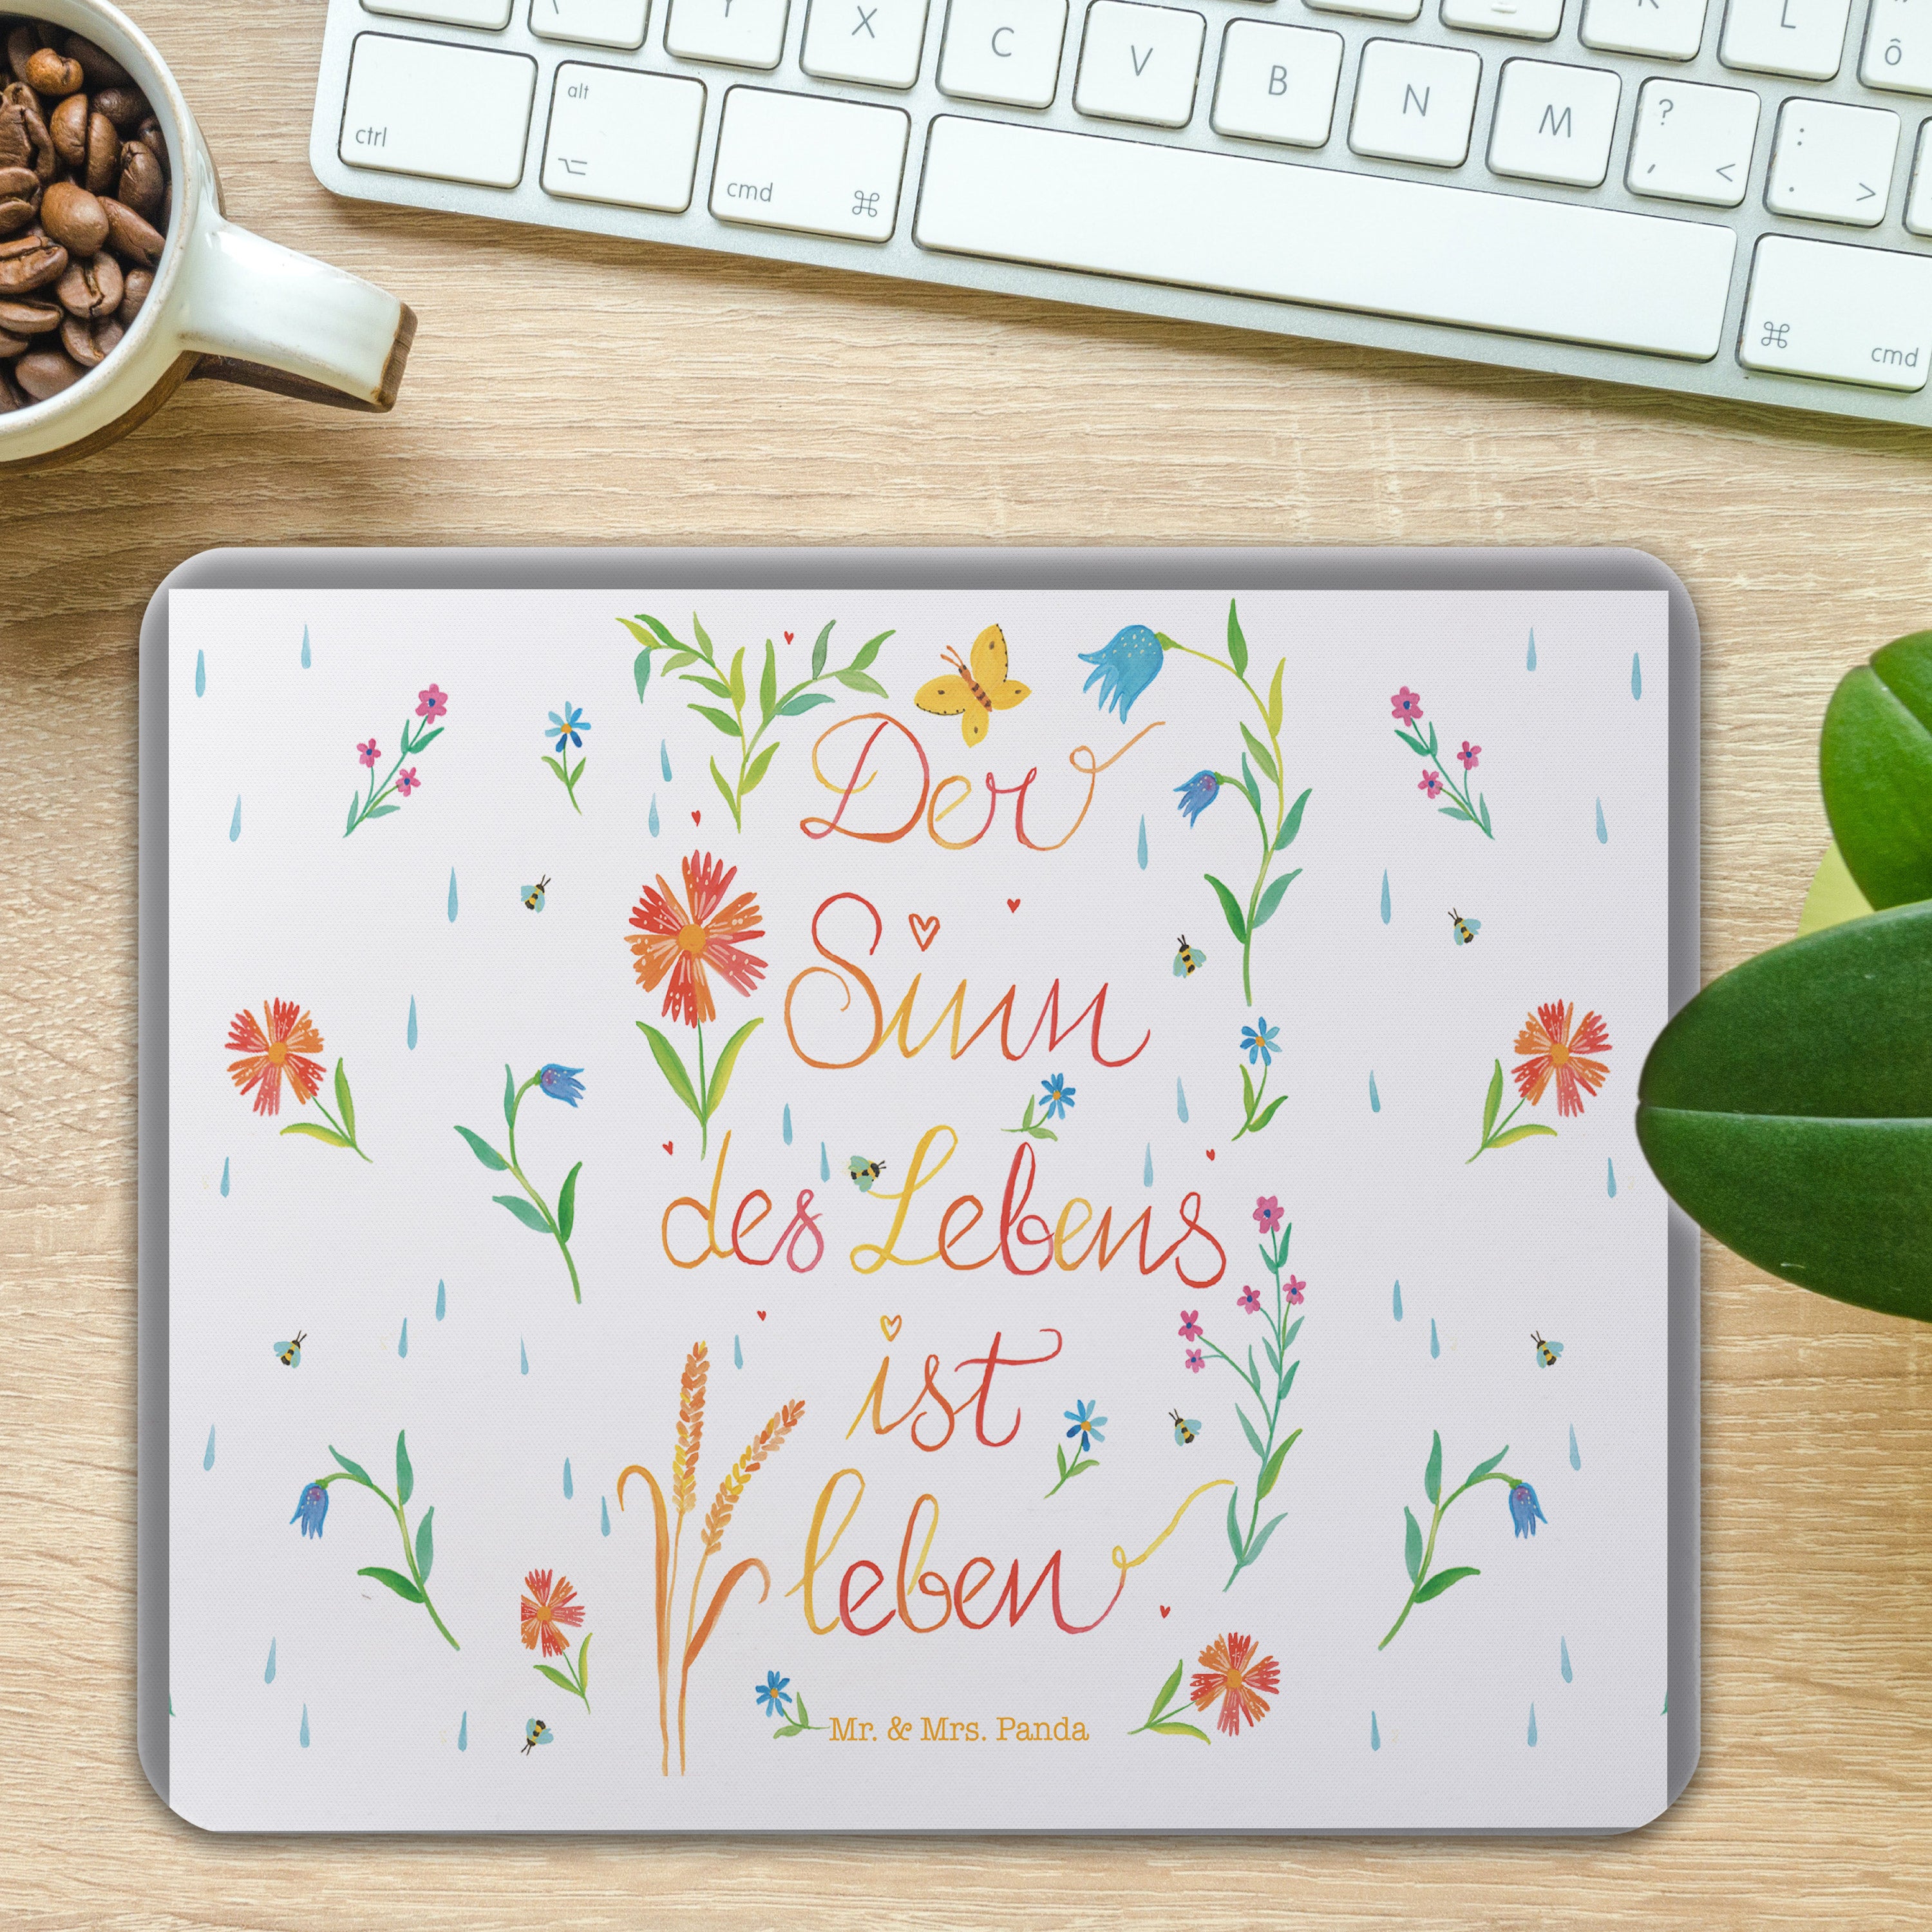 Y X C V B N M K L Ö
ctrl alt cmd ⌘ ? , < : . > ⌘ cmd
Der
Sinn
des Lebens
ist
leben
Mr. & Mrs. Panda